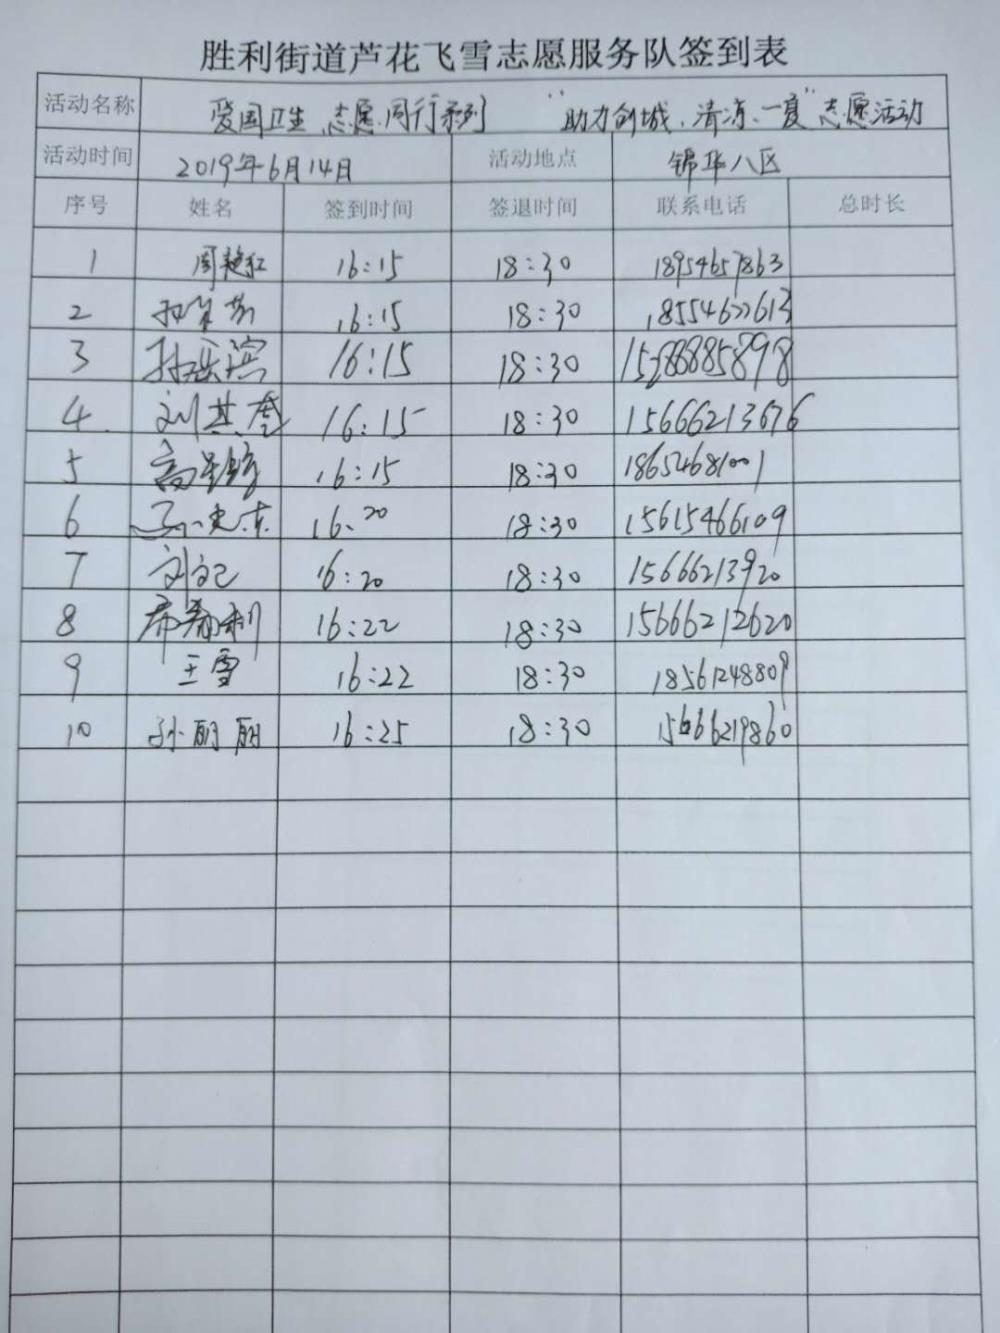 胜利街道芦花飞雪志愿服务队签到表
活动名称 爱国卫生 志愿同行系列 "助力创城、清凉一夏"志愿活动
活动时间 2019年6月14日 活动地点 锦华八区
序号 姓名 签到时间 签退时间 联系电话 总时长
1 周艳红 16:15 18:30 18954657863
2 16:15 18:30
3 孙岳滨 16:15 18:30
4 刘其奎 16:15 18:30 15666213676
5 16:15 18:30 18654681001
6 16:20 18:30 15615466109
7 刘文己 16:20 18:30 15666213920
8 16:22 18:30 15666212620
9 王雪 16:22 18:30 18561248809
10 孙丽丽 16:25 18:30 15666219860